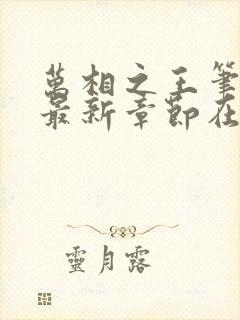 萬相之王筆
最新章節在
靈月露